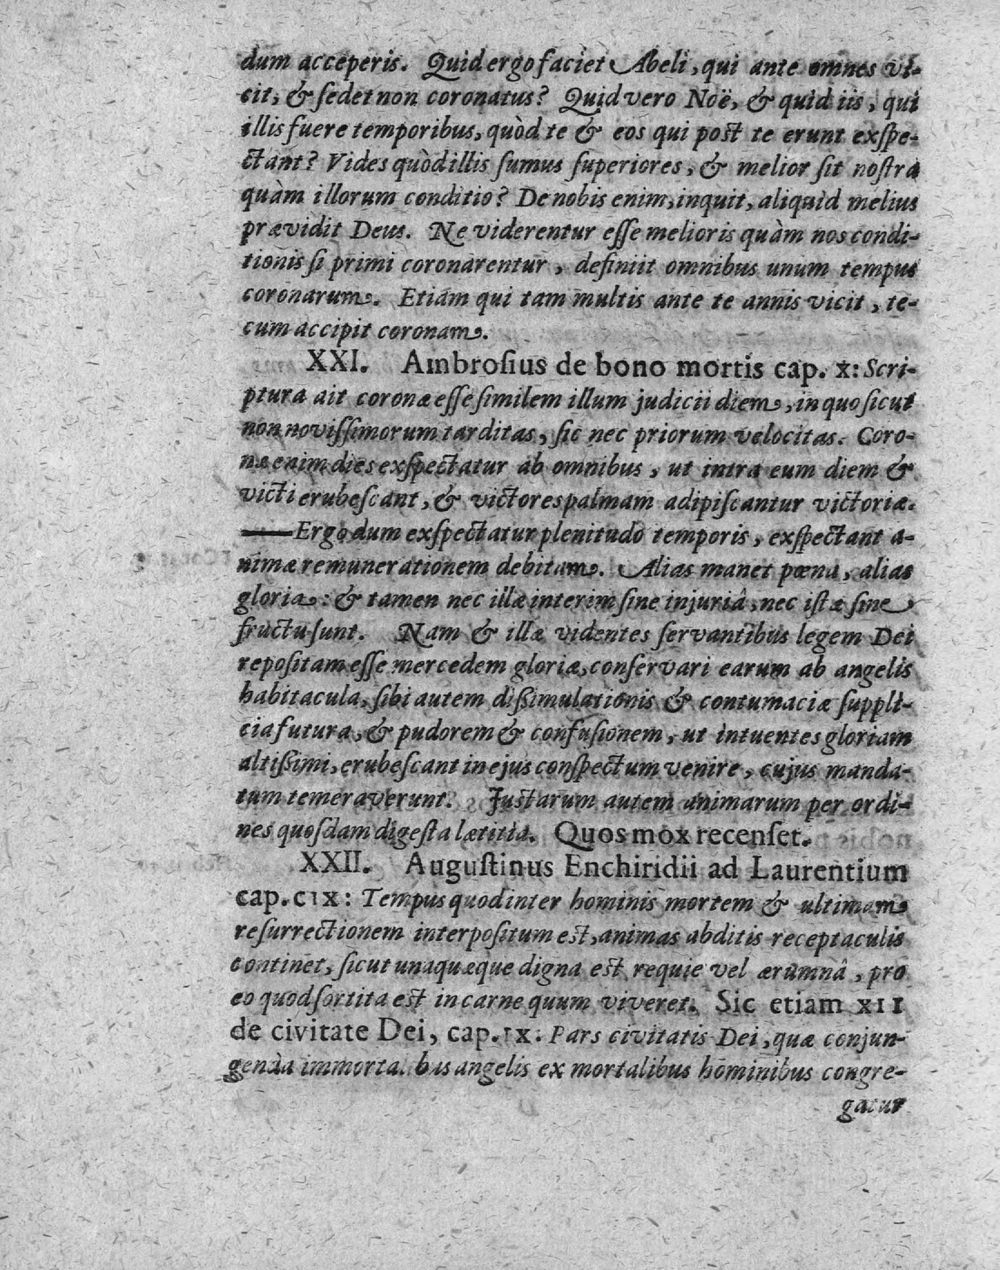 dum acceperis. Quid ergo faciet Abeli, qui ante omnes vi-
cit, & sedet non coronatus? Quid vero Noë, & quid iis, qui
illis fuere temporibus, quòd te & eos qui post te erunt exspe-
ctant? Vides quòd illis sumus superiores, & melior sit nostra
quàm illorum conditio? De nobis enim, inquit, aliquid melius
prævidit Deus. Ne viderentur esse melioris quàm nos condi-
tionis si primi coronarentur, definiit omnibus unum tempus
coronarum. Etiam qui tam multis ante te annis vicit, te-
cum accipit coronam.
XXI. Ambrosius de bono mortis cap. x: Scri-
ptura ait coronæ esse similem illum judicii diem, in quo sicut
non novissimorum tarditas, sic nec priorum velocitas. Coro-
næ enim dies exspectatur ab omnibus, ut intra eum diem &
victi erubescant, & victores palmam adipiscantur victoriæ.
—Ergo dum exspectatur plenitudo temporis, exspectant a-
nimæ remunerationem debitam. Alias manet pœna, alias
gloria: & tamen nec illæ interim sine injuriâ, nec istæ sine
fructu sunt. Nam & illæ videntes servantibus legem Dei
repositam esse mercedem gloriæ, conservari earum ab angelis
habitacula, sibi autem dissimulationis & contumaciæ suppli-
cia futura, & pudorem & confusionem, ut intuentes gloriam
altissimi, erubescant in ejus conspectum venire, cujus manda-
tum temeraverunt. Justarum autem animarum per ordi-
nes quosdam digesta lætitia. Quos mox recenset.
XXII. Augustinus Enchiridii ad Laurentium
cap. cıx: Tempus quod inter hominis mortem & ultimam
resurrectionem interpositum est, animas abditis receptaculis
continet, sicut unaquæque digna est requie vel ærumnâ, pro
eo quod sortita est in carne quum viveret. Sic etiam xıı
de civitate Dei, cap. ıx: Pars civitatis Dei, quæ conjun-
genda immortalibus angelis ex mortalibus hominibus congre-
gatur